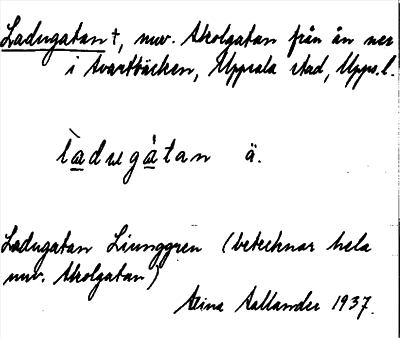 Ladugatan †, nuv. Skolgatan från ån ner
i Svartbäcken, Uppsala stad, Upps.l.
l̀a̲dugá̲tan ä.
Ladugatan Ljunggren (betecknar hela
nuv. Skolgatan)
Stina Sallander 1937.